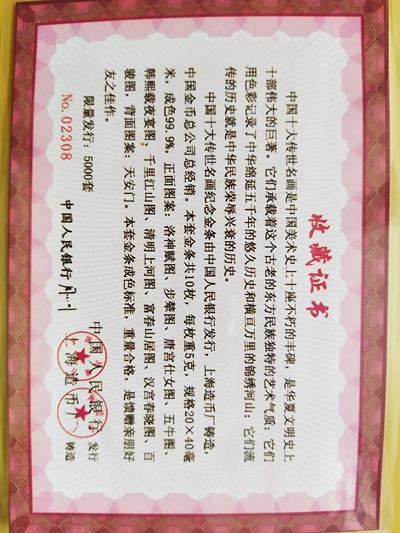 收藏证书
中国十大传世名画是中国美术史上十座不朽的丰碑，是华夏文明史上
十部伟大的巨著。它们承载着这个古老的东方民族独特的艺术气质；它们
用色彩记录了中华绵延五千年的悠久历史和横亘万里的锦绣河山；它们流
传的历史就是中华民族荣辱兴衰的历史。
中国十大传世名画纪念金条由中国人民银行发行，上海造币厂铸造，
中国金币总公司总经销。本套金条共10枚，每枚重5克，规格20×40毫
米，成色99.9%，正面图案：洛神赋图、步辇图、唐宫仕女图、五牛图、
韩熙载夜宴图、千里江山图、清明上河图、富春山居图、汉宫春晓图、百
骏图，背面图案：天安门。本套金条成色标准，重量合格，是馈赠亲朋好
友之佳作。
限量发行：5000套
No.02308
中国人民银行
中国人民银行 发行
上海造币厂 铸造